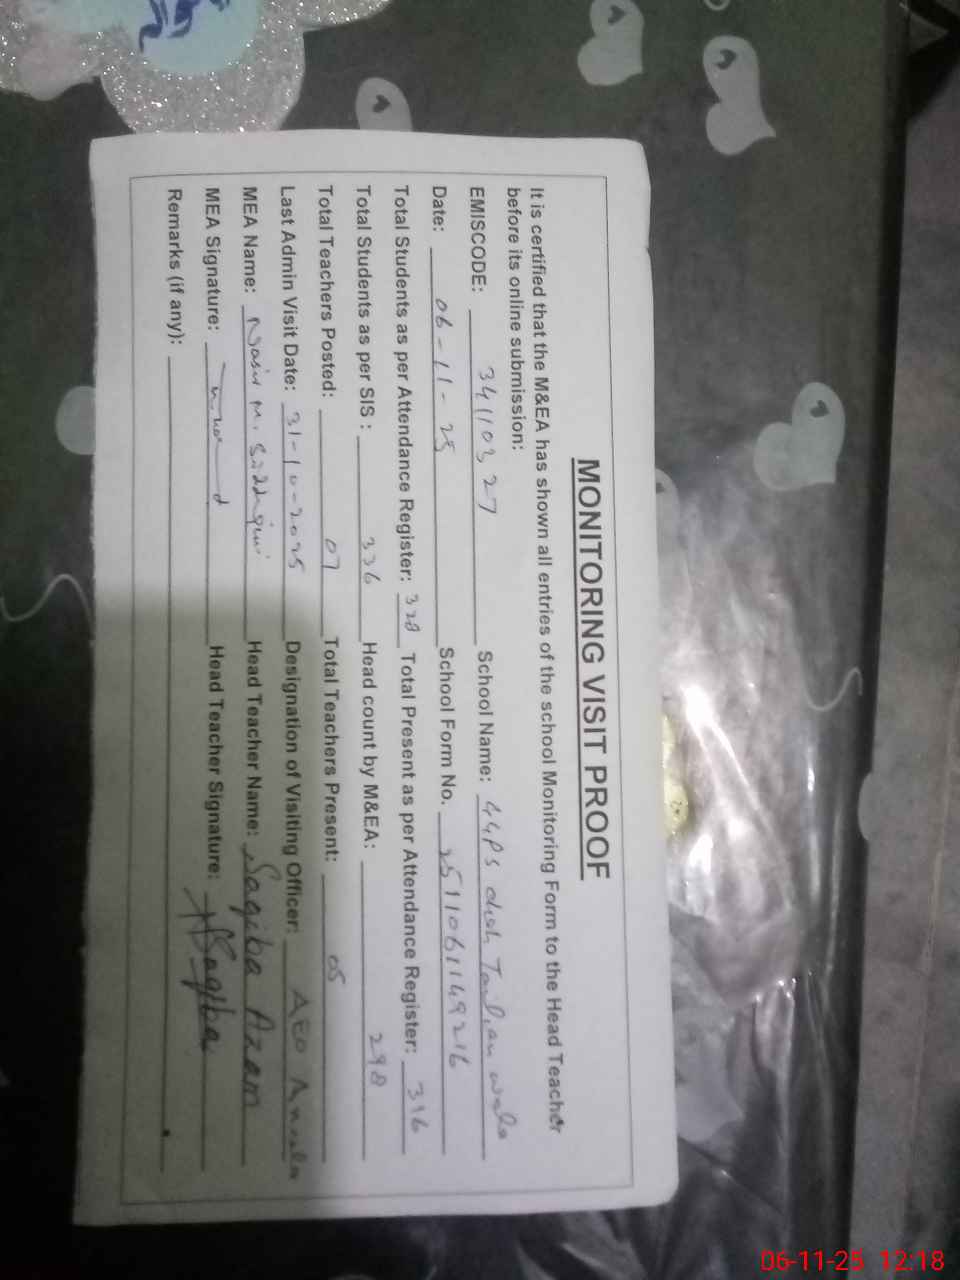 MONITORING VISIT PROOF
It is certified that the M&EA has shown all entries of the school Monitoring Form to the Head Teacher
before its online submission:
EMISCODE: 34110327 School Name: GGPS
Date: 06-11-25 School Form No. 2511061149216
Total Students as per Attendance Register: 328 Total Present as per Attendance Register: 316
Total Students as per SIS : 336 Head count by M&EA: 298
Total Teachers Posted: 07 Total Teachers Present: 05
Last Admin Visit Date: 31-10-2025 Designation of Visiting Officer: AEO
MEA Name: Nasir M. Siddiqui Head Teacher Name: Saqiba Azam
MEA Signature: Head Teacher Signature: Saqiba
Remarks (if any):
06-11-25 12:18